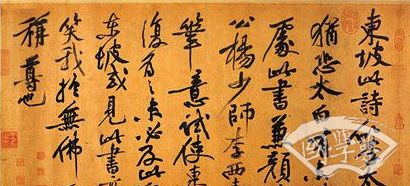 東坡此詩似李太
猶恐太白有未
處此書兼顏
公楊少師李西
筆意試使東
復為之未必及此
東坡或見此書應
笑我於無佛
稱尊也